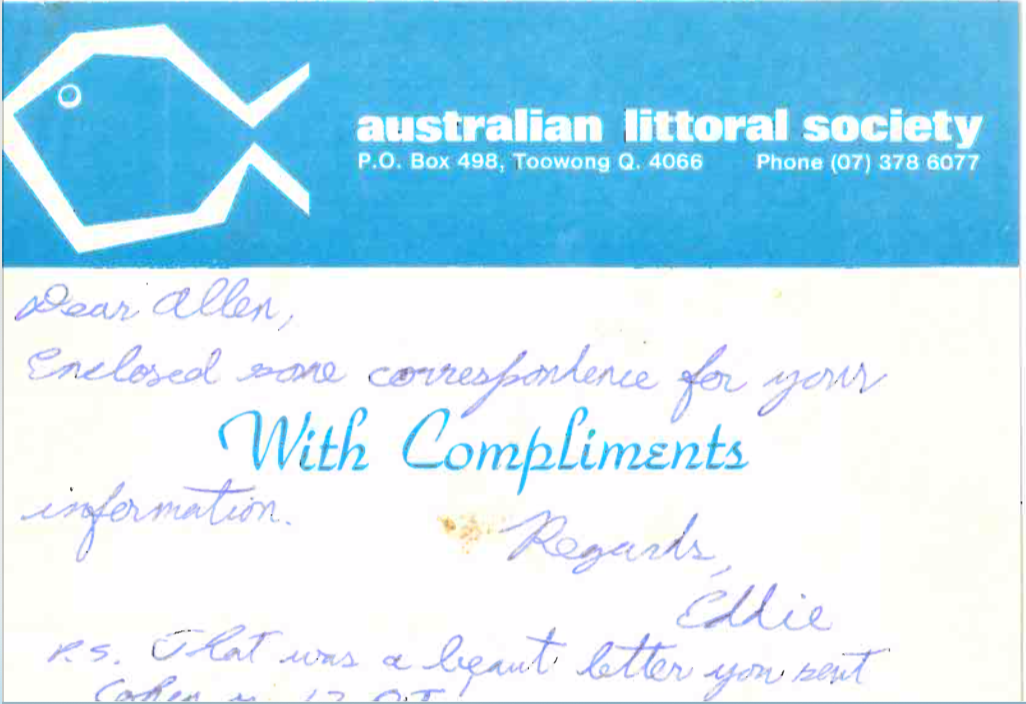 australian littoral society
P.O. Box 498, Toowong Q. 4066 Phone (07) 378 6077
Dear Allen,
Enclosed some correspondence for your
With Compliments
information.
Regards,
Eddie
P.S. That was a beaut letter you sent